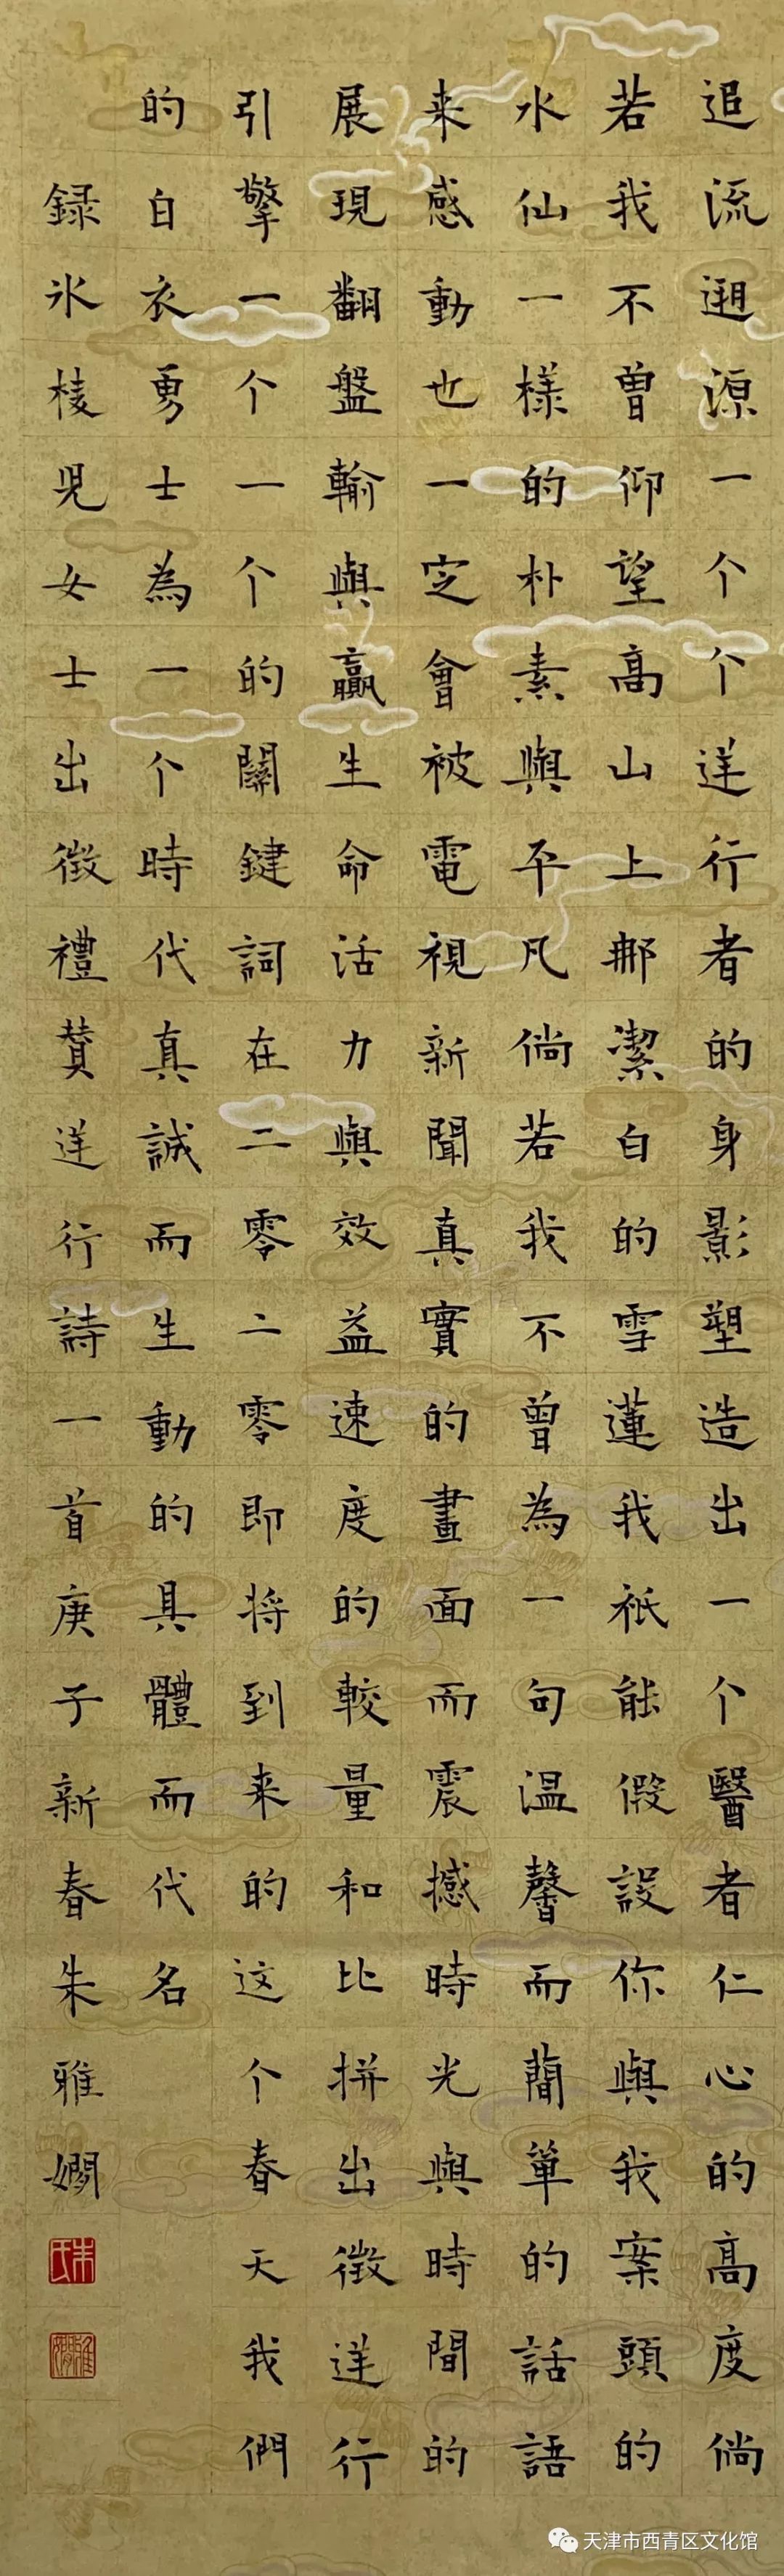 追流遡源一个个逆行者的身影塑造出一个醫者仁心的高度倘
若我不曾仰望高山上那潔白的雪蓮我祇能假設你與我案頭的
水仙一樣的朴素與平凡倘若我不曾為一句温馨而簡單的話語
来感動也一定會被電視新聞真實的畫面而震撼時光與時間的
展現翻盤輸與贏生命活力與效益速度的較量和比拼出徵逆行
引擎一个一个的關鍵詞在二零二零即将到来的这个春天我們
的白衣勇士為一个時代真誠而生動的具體而代名
録氷棱兒女士出徵禮贊逆行詩一首庚子新春朱雅嫻
朱氏
雅嫻
天津市西青区文化馆